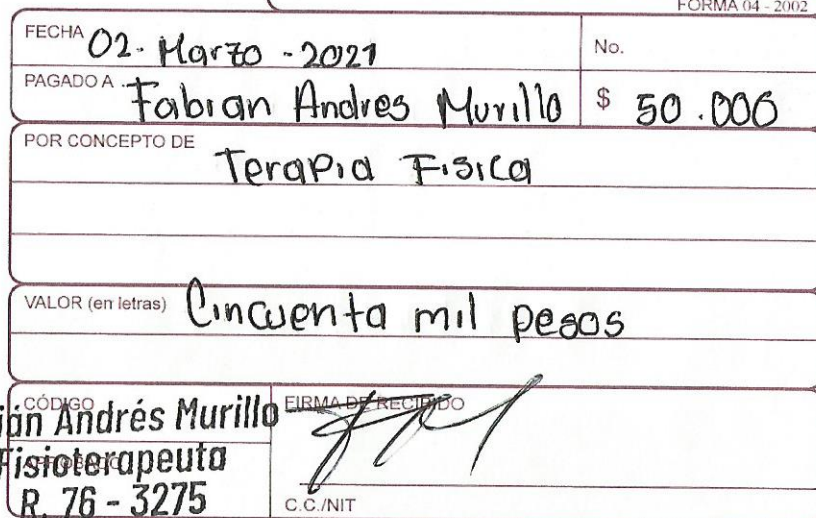 FORMA 04 - 2002
FECHA 02. Marzo - 2021
No.
PAGADO A Fabian Andres Murillo $ 50.000
POR CONCEPTO DE Terapia Fisica
VALOR (en letras) Cincuenta mil pesos
CÓDIGO
FIRMA DE RECIBIDO
ián Andrés Murillo
Fisioterapeuta
R. 76 - 3275
C.C./NIT